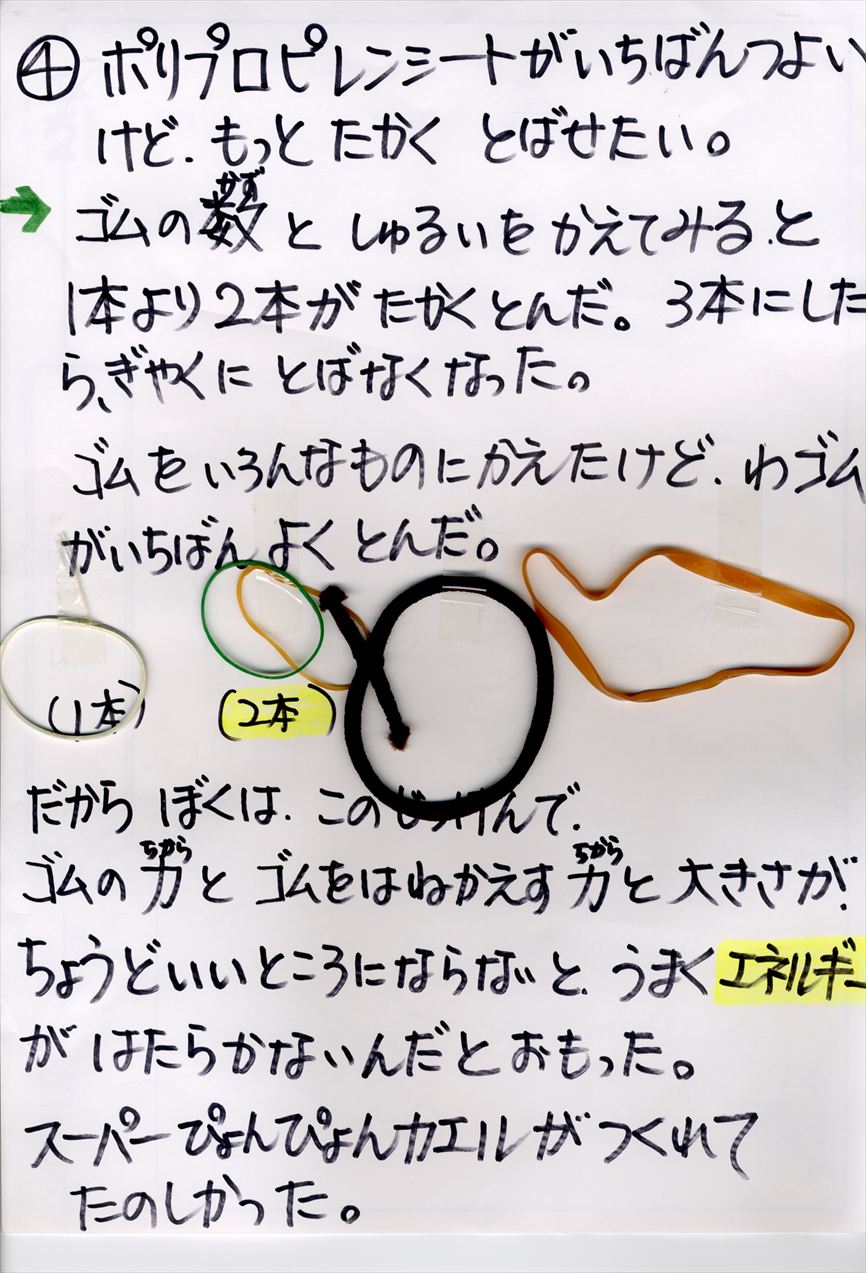 ④ ポリプロピレンシートがいちばんつよい
けど、もっと たかく とばせたい。
→ ゴムの数としゅるいをかえてみる、と
かず
1本より2本が たかくとんだ。3本にした
ら、ぎゃくに とばなくなった。
ゴムをいろんなものにかえたけど、わゴム
がいちばん よく とんだ。
(1本) (2本)
だから ぼくは、この んで、
ゴムの力と ゴムをはねかえす力と 大きさが、
ちから ちから
ちょうどいいところにならないと、うまくエネルギー
が はたらかないんだとおもった。
スーパーぴょんぴょんカエルが つくれて
たのしかった。